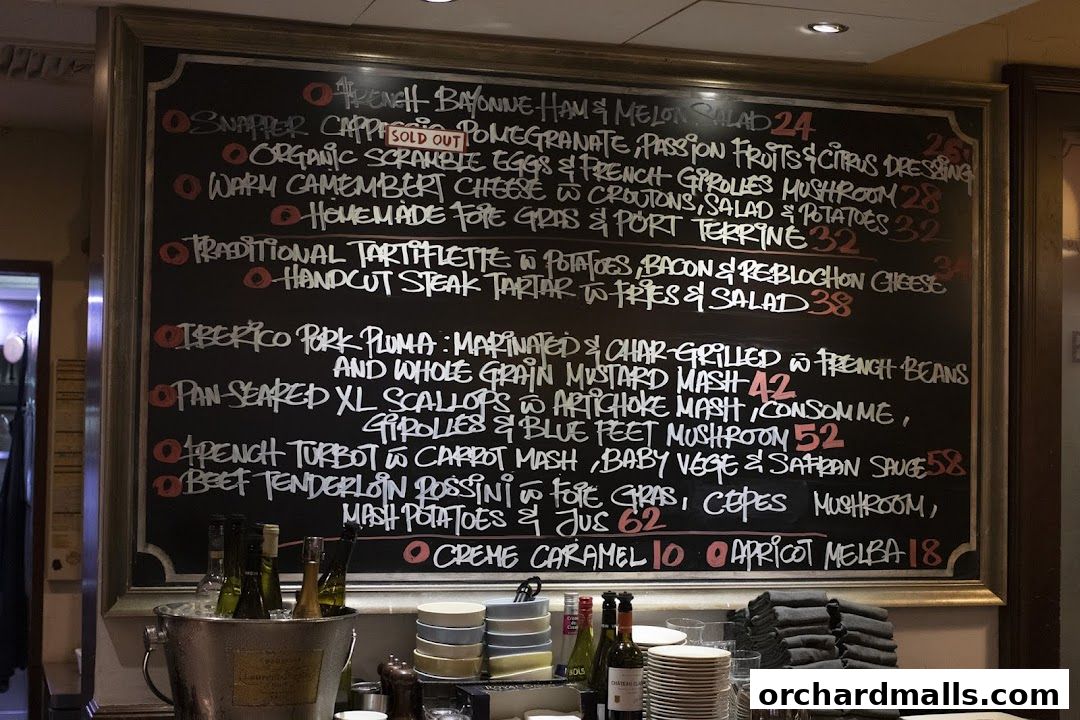 FRENCH BAYONNE HAM & MELON SALAD 24
SNAPPER POMEGRANATE, PASSION FRUITS & CITRUS DRESSING
SOLD OUT
ORGANIC SCRAMBLE EGGS & FRENCH GIROLLES MUSHROOM 28
WARM CAMEMBERT CHEESE W CROUTONS, SALAD & POTATOES 32
HOMEMADE FOIE GRAS & PORT TERRINE 32
TRADITIONAL TARTIFLETTE W POTATOES, BACON & REBLOCHON CHEESE
HANDCUT STEAK TARTAR W FRIES & SALAD 38
IBERICO PORK PLUMA: MARINATED & CHAR-GRILLED W FRENCH BEANS
AND WHOLE GRAIN MUSTARD MASH 42
PAN-SEARED XL SCALLOPS W ARTICHOKE MASH, CONSOMME,
GIROLLES & BLUE FEET MUSHROOM 52
FRENCH TURBOT W CARROT MASH, BABY VEGE & SAFRAN SAUCE 58
BEEF TENDERLOIN ROSSINI W FOIE GRAS, CEPES MUSHROOM,
MASH POTATOES & JUS 62
CREME CARAMEL 10 APRICOT MELBA 18
orchardmalls.com